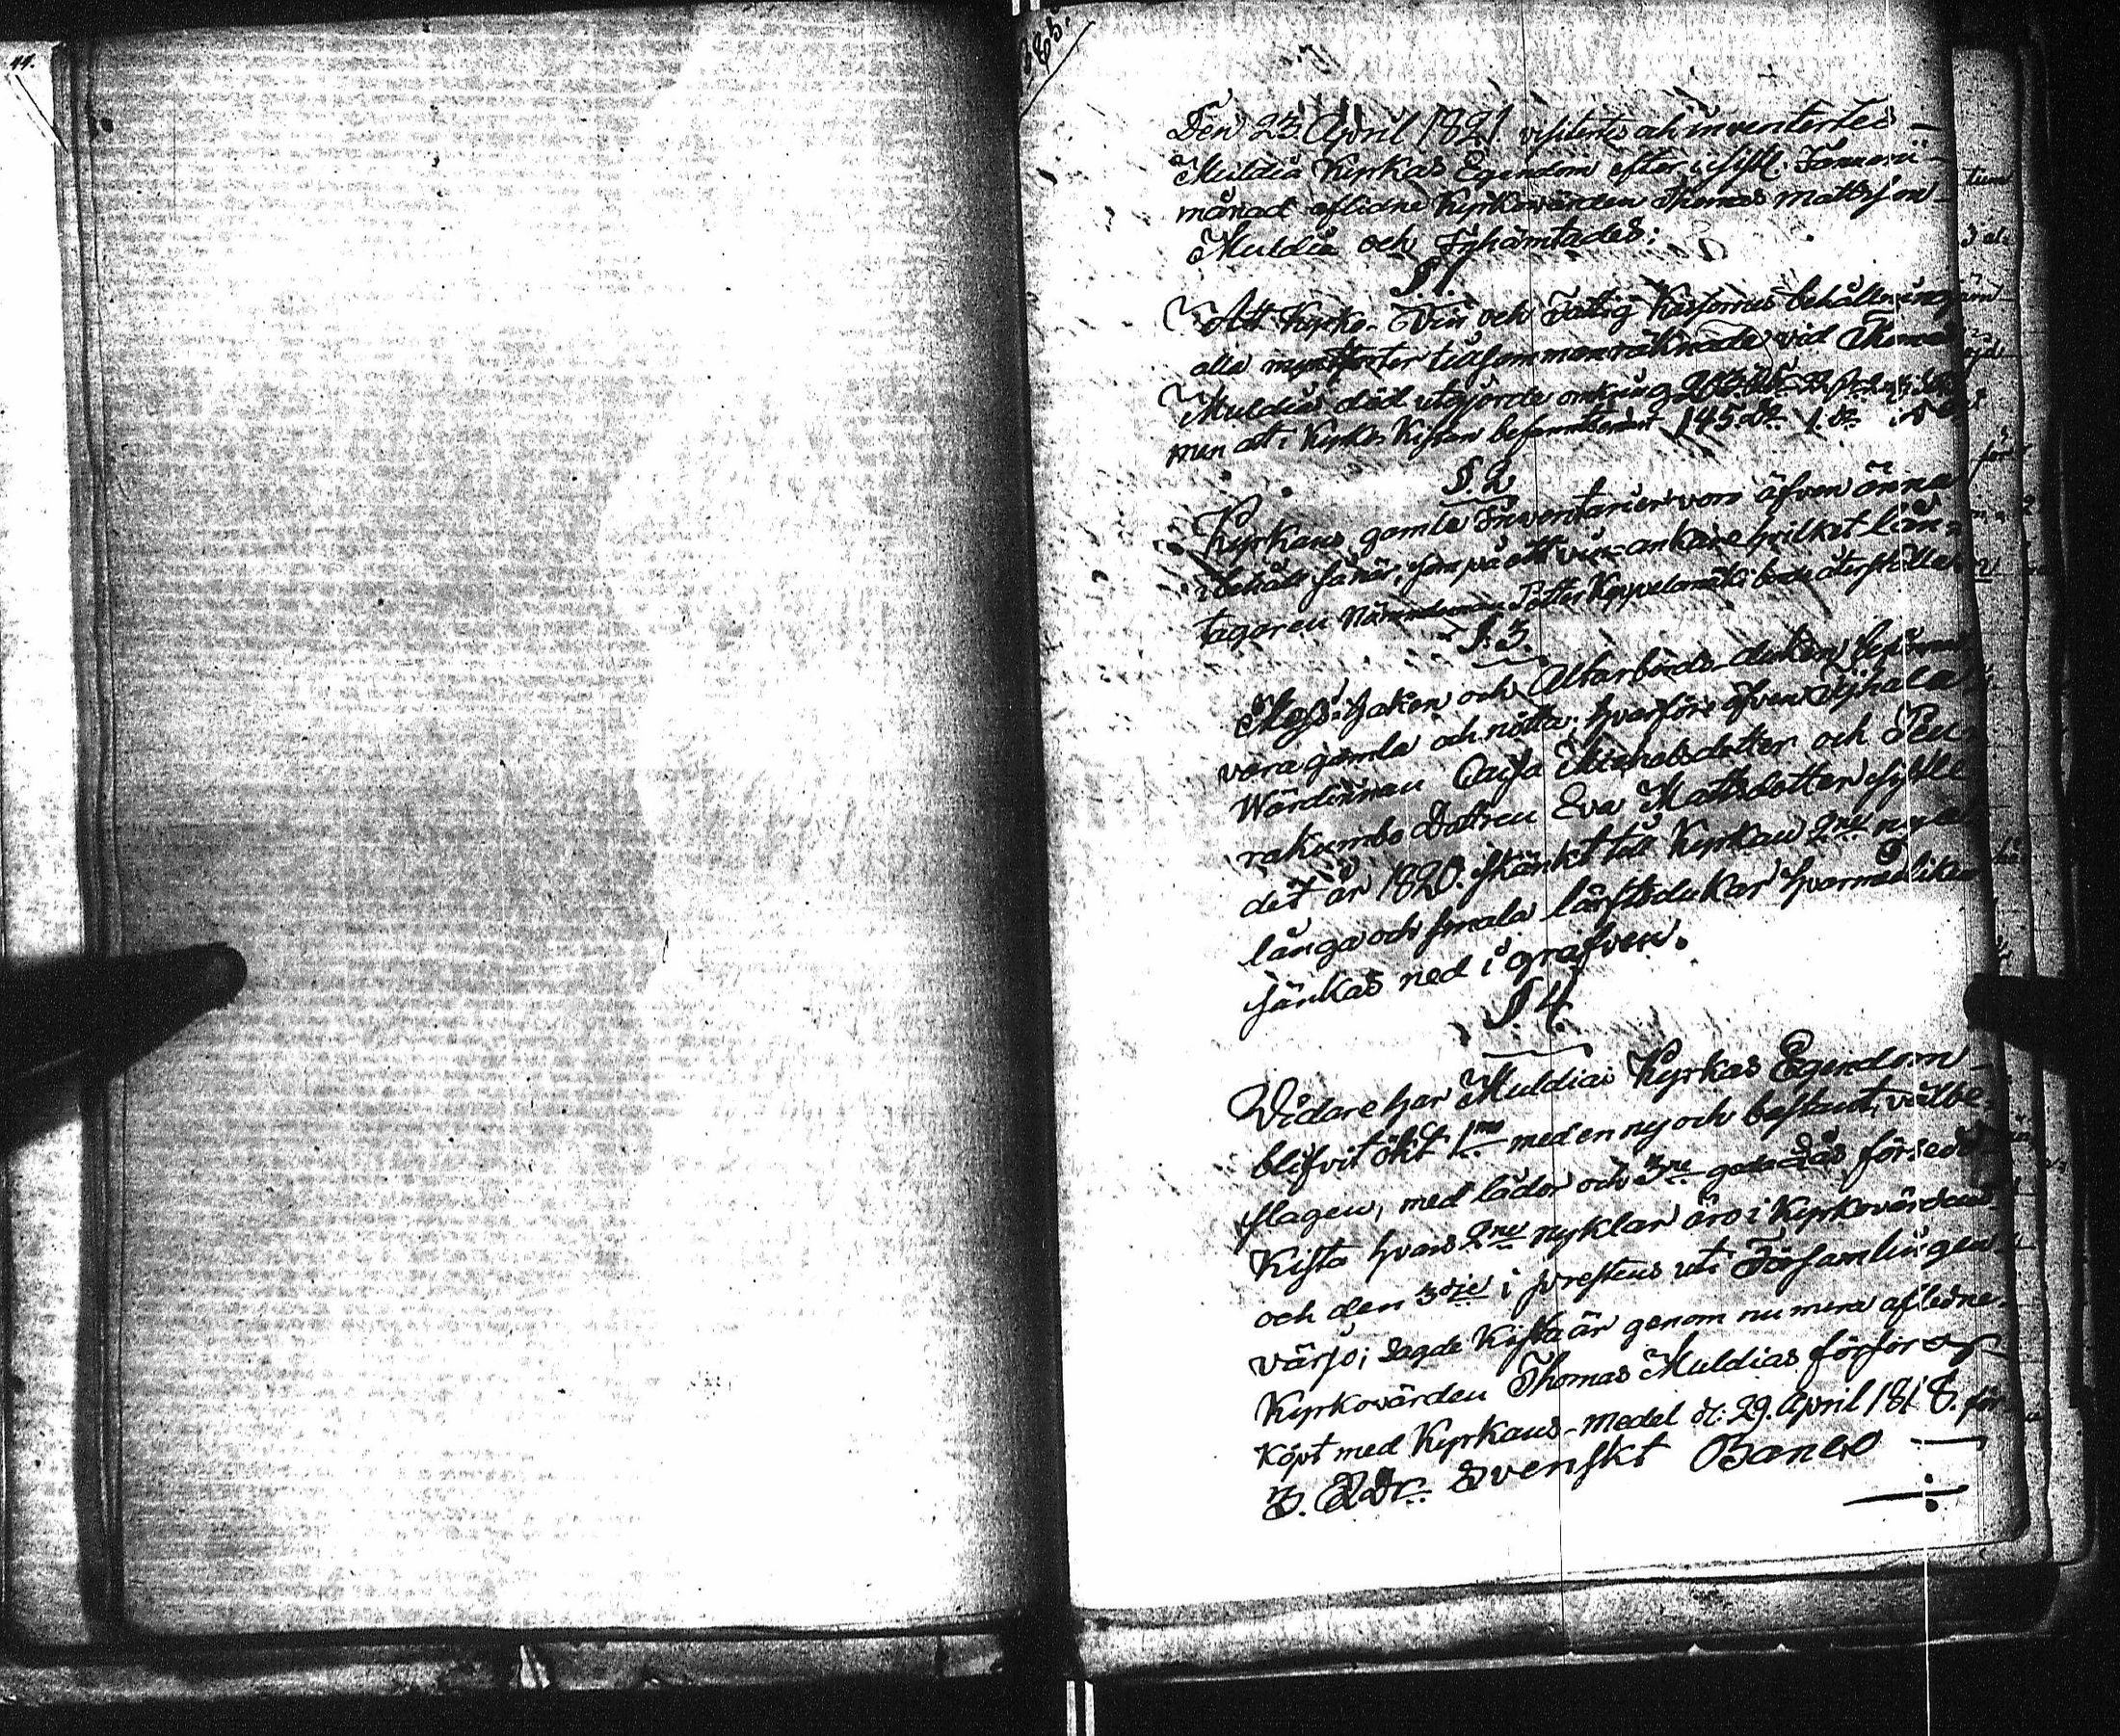 Den 23 April 1821 visiterades och inventerades
Muldia Kyrkas Egendom efter i sistl. Januarii
månad aflidne Kyrkovärden Thomas Mattsson
Muldia och Inhämtades:
§.1.
Att Kyrko- Vin och Fattig Kassornes behållning
alla myntsorter tillsammanräknade vid Thomas
Muldias död utgjorde omkring
men att i Kyrko Kistan befanns 145 1
§.2
Kyrkans gamla Inventarier voro äfven ännu
i behåll så när, som på ett vin-ankare hvilket lån-
tagaren Nämndeman borde återställa
§.3.
Mess-haken och Altarbords-duken
vara gamla och nötta; hvarföre äfven
Wärdinnan Caisa Michelsdotter och Peu-
rakumbo Dottren Eva Mattsdotter
det år 1820. skänkt till Kyrkan 2ne nya
långa och smala lärftsdukar hvarmed liken
sänkas ned i grafven.
§ 4.
Vidare har Muldias Kyrkas Egendom
blifvit ökt 1mo med en ny och bastant, välbe-
slagen, med lådor och 3ne goda Lås försedd
Kista hvars 2ne nyklar äro i Kyrkovärdens
och den 3dje i prestens uti Församlingen
värjo; Sagde Kista är genom numera aflidne
Kyrkovärden Thomas Muldias försorg
köpt med Kyrkans-medel d: 29. April 1818. för
3. Rdr. Svenskt Banco